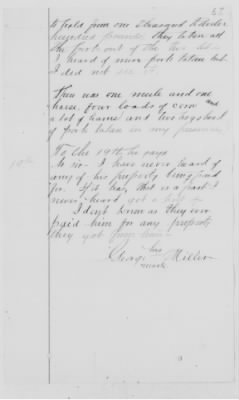 62
to from one thousand
hundred pounds, they taken all
the pork out of the
I heard of more pork taken but
I did not see it.
There was one mule and one
horse, four loads of corn and
a lot of and two hogshead
of pork taken in my presence
To the 19th he says
I have never heard of
any of his property being paid
for. If it has, that is a part I
never heard
I don't know as they ever
paid him for any property
they got from him
his
George Miller
mark